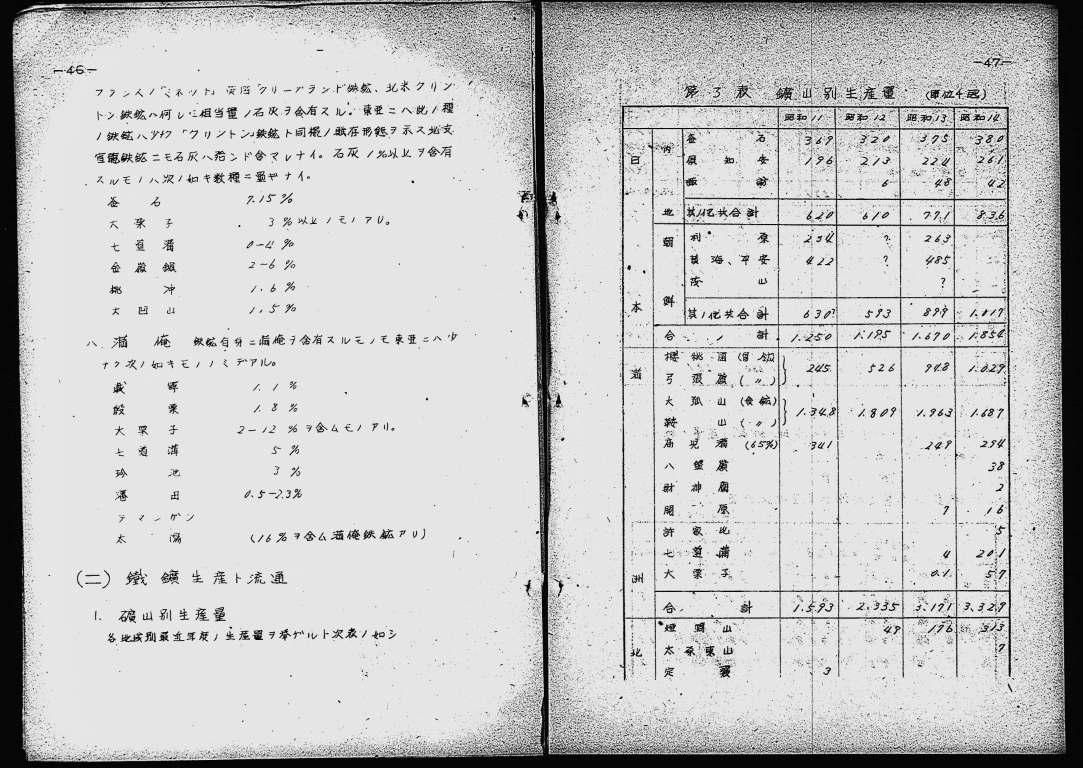 —46—
フランス/「ミネット」 英国 クリーブランド鉄鉱、北米クリン
トン鉄鉱ハ何レモ相当量ノ石灰ヲ含有スル。東亜ニハ此ノ種
ノ鉄鉱ハ少ナク「クリントン」鉄鉱ト同様ノ賦存形態ヲ示ス北支
宣龍鉄鉱ニモ石灰ハ殆ンド含マレナイ。石灰1%以上ヲ含有
スルモノハ次ノ如キ数種ニ過ギナイ。
釜石 7.15%
大栗子 3%以上ノモノアリ。
七道溝 0-4%
金嶺鎮 2-6%
桃冲 1.6%
大凹山 1.5%
ハ 満俺 鉄鉱自身ニ満俺ヲ含有スルモノモ東亜ニハ少
ナク次ノ如キモノノミデアル。
1.1%
殷栗 1.8%
大栗子 2-12%ヲ含ムモノアリ。
七道溝 5%
池 3%
田 0.5-2.3%
ラマンガン
太 (16%ヲ含ム満俺鉄鉱アリ)
(二) 鐵鑛生産ト流通
1. 礦山別生産量
各地域別最近年度ノ生産量ヲ挙ゲルト次表ノ如シ
—47—
第3表 鑛山別生産量 (単位千瓲)
昭和11 昭和12 昭和13 昭和14
日本 内地 釜石 369 320 375 380
倶知安 196 213 224 261
諏訪 6 48 42
其ノ他共合計 620 610 771 836
朝鮮 利原 254 ? 263
黄海、平安 422 ? 485
茂山 ?
其ノ他共合計 630? 593 899 1.017
合計 1.250 1.195 1.670 1.854
満洲 櫻桃園(貧鉱)
弓張嶺(〃) 245 526 948 1.029
大孤山(貧鉱)
鞍山(〃) 1.348 1.809 1.963 1.687
廟児溝(65%) 341 249 294
八盤嶺 38
財神廟 2
開原 7 16
許家屯 5
七道溝 4 201
大栗子 0.1 57
合計 1.593 2.335 3.171 3.329
北 煙筒山 49 176 313
太原東山 7
定襄 3